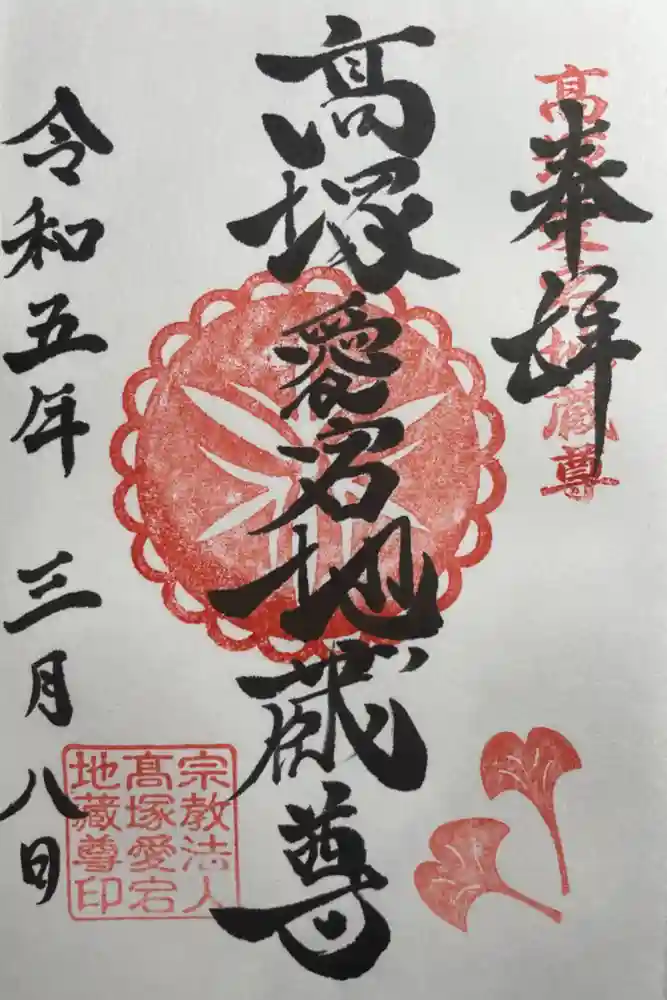 奉拝
髙塚愛宕地蔵尊
髙塚愛宕地蔵尊
令和五年 三月八日
宗教法人
髙塚愛宕
地蔵尊印